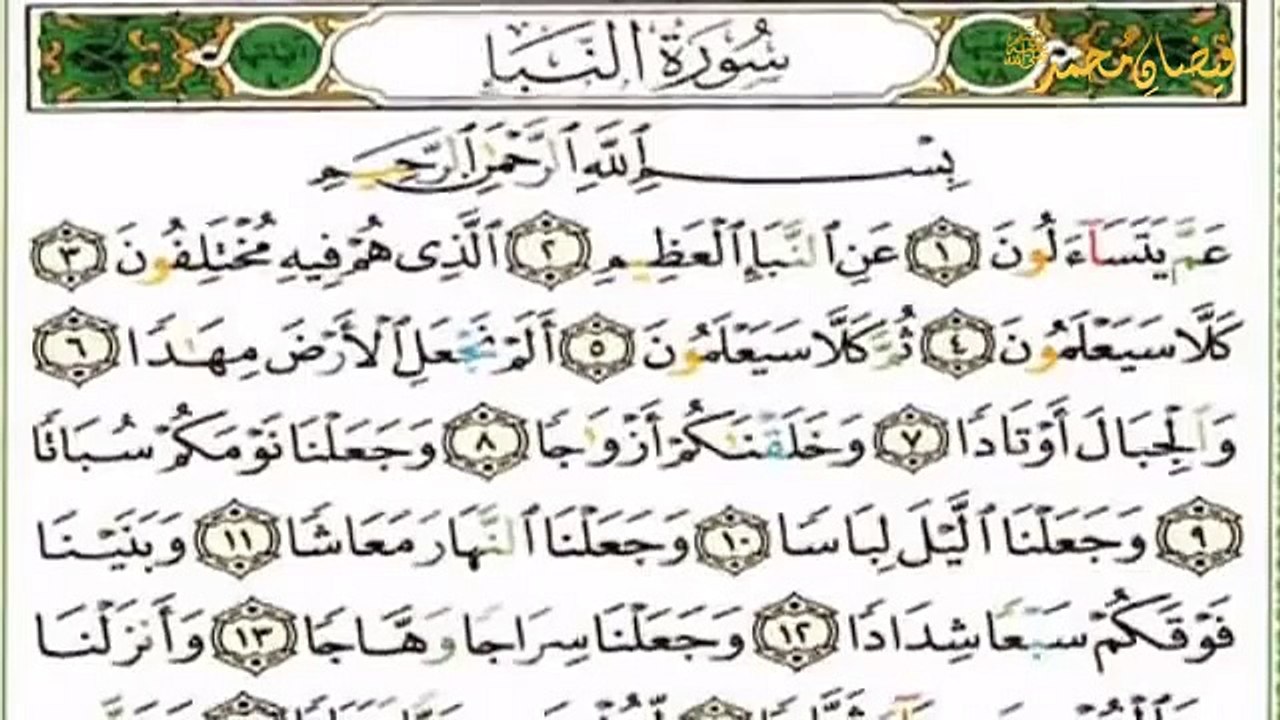 سُورَةُ النَّبَإِ
فيضانِ مُحمد ﷺ
بِسْمِ ٱللَّهِ ٱلرَّحْمَٰنِ ٱلرَّحِيمِ
عَمَّ يَتَسَآءَلُونَ ١ عَنِ ٱلنَّبَإِ ٱلْعَظِيمِ ٢ ٱلَّذِى هُمْ فِيهِ مُخْتَلِفُونَ ٣
كَلَّا سَيَعْلَمُونَ ٤ ثُمَّ كَلَّا سَيَعْلَمُونَ ٥ أَلَمْ نَجْعَلِ ٱلْأَرْضَ مِهَٰدًا ٦
وَٱلْجِبَالَ أَوْتَادًا ٧ وَخَلَقْنَٰكُمْ أَزْوَٰجًا ٨ وَجَعَلْنَا نَوْمَكُمْ سُبَاتًا
٩ وَجَعَلْنَا ٱلَّيْلَ لِبَاسًا ١٠ وَجَعَلْنَا ٱلنَّهَارَ مَعَاشًا ١١ وَبَنَيْنَا
فَوْقَكُمْ سَبْعًا شِدَادًا ١٢ وَجَعَلْنَا سِرَاجًا وَهَّاجًا ١٣ وَأَنزَلْنَا